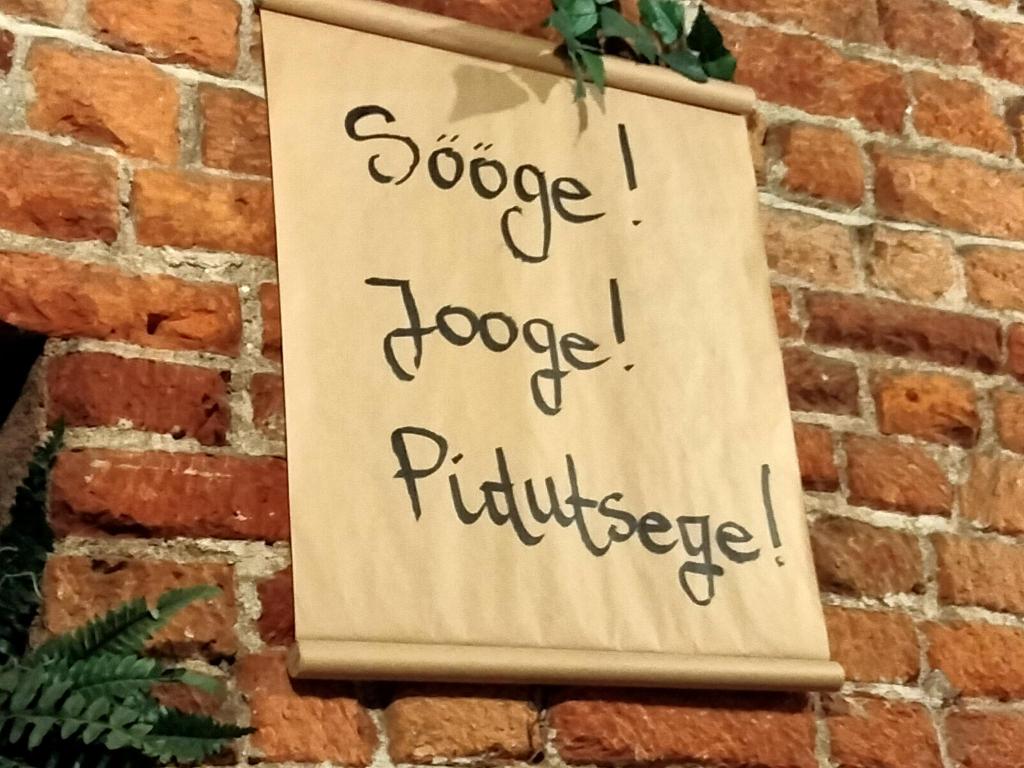 Sööge!
Jooge!
Pidutsege!